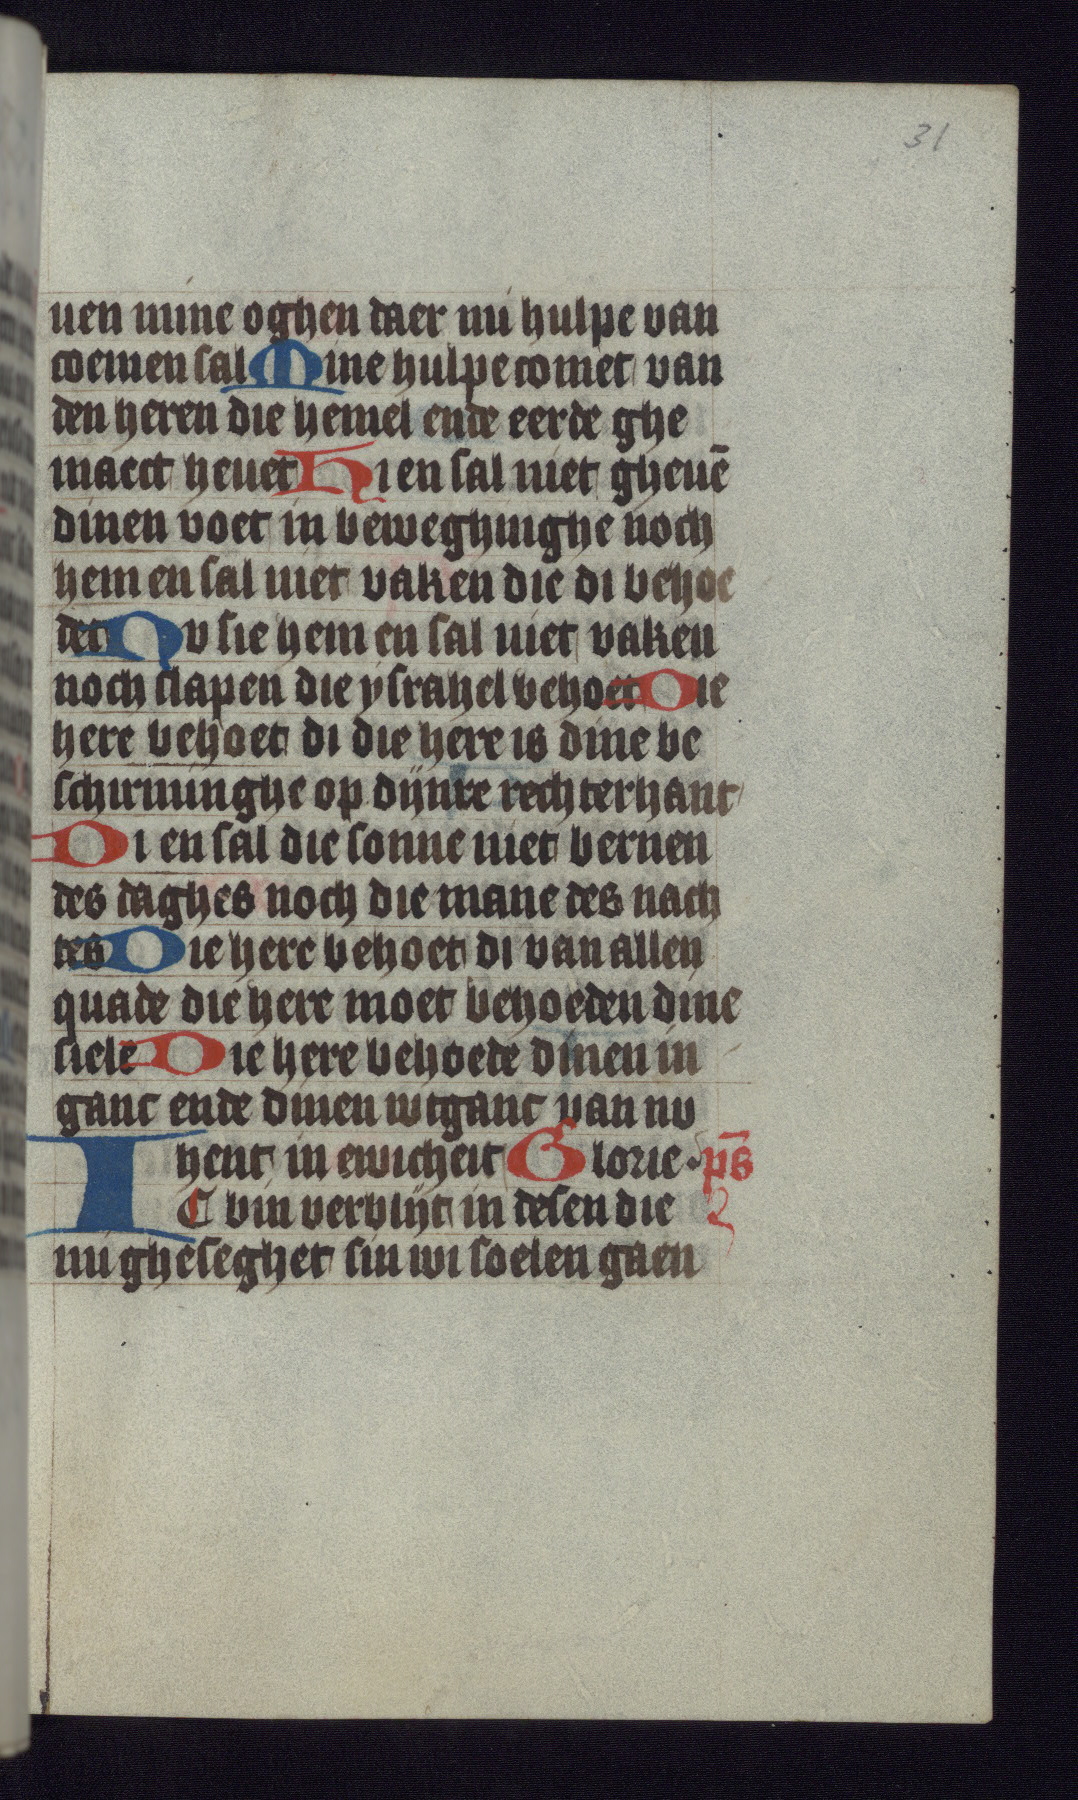 31
uen mine oghen daer mi hulpe van
coemen sal Mine hulpe comet van
den heren die hemel ende eerde ghe
maect heuet Hi en sal niet gheuē
dinen voet in beweghinghe noch
hem en sal niet vaken die di behoe
det Nv sie hem en sal niet vaken
noch slapen die ysrahel behoet Die
here behoet di die here is dine be
schirminghe op dijnre rechterhant
Di en sal die sonne niet bernen
des daghes noch die mane des nach
tes Die here behoet di van allen
quade die here moet behoeden dine
siele Die here behoede dinen in
ganc ende dinen wtganc van nv
hent in ewicheit Glorie · ps̄
IC bin verblijt in desen die
mi gheseghet sin wi soelen gaen